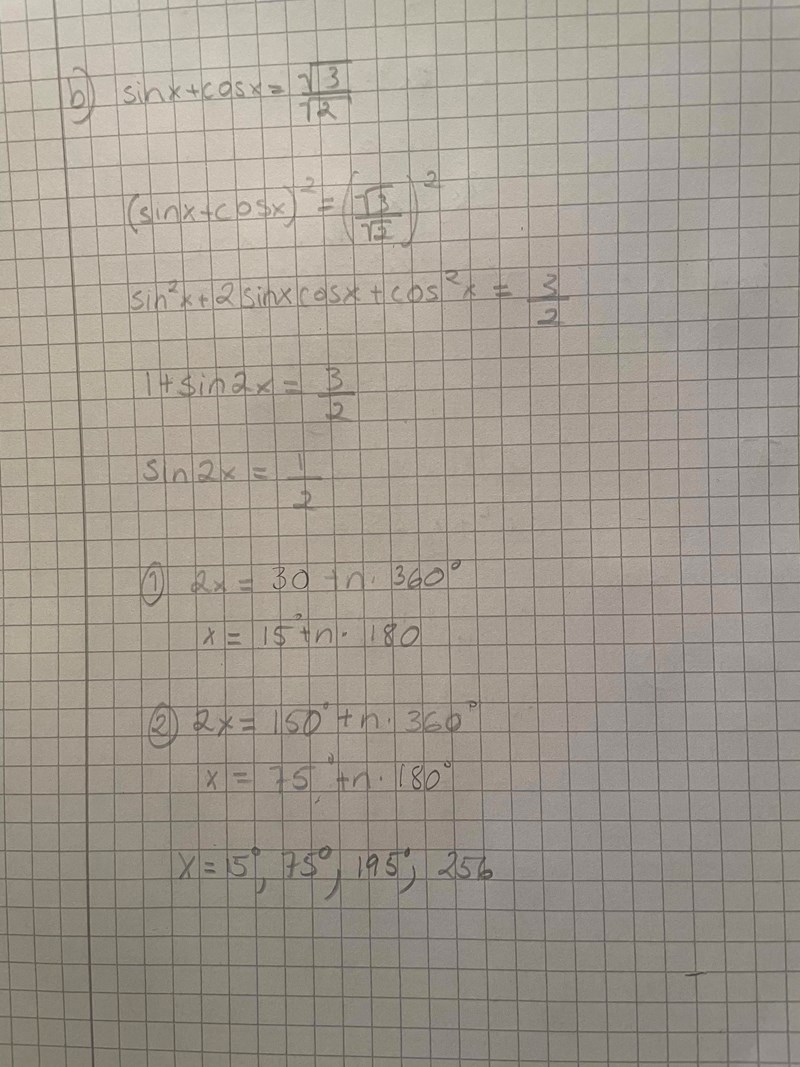 b) sinx+cosx = √3/√2
(sinx+cosx)² = (√3/√2)²
sin²x + 2sinxcosx + cos²x = 3/2
1+sin2x = 3/2
sin2x = 1/2
① 2x = 30 + n· 360°
x = 15° + n· 180
② 2x = 150° + n· 360°
x = 75° + n· 180°
x = 15°, 75°, 195°, 256